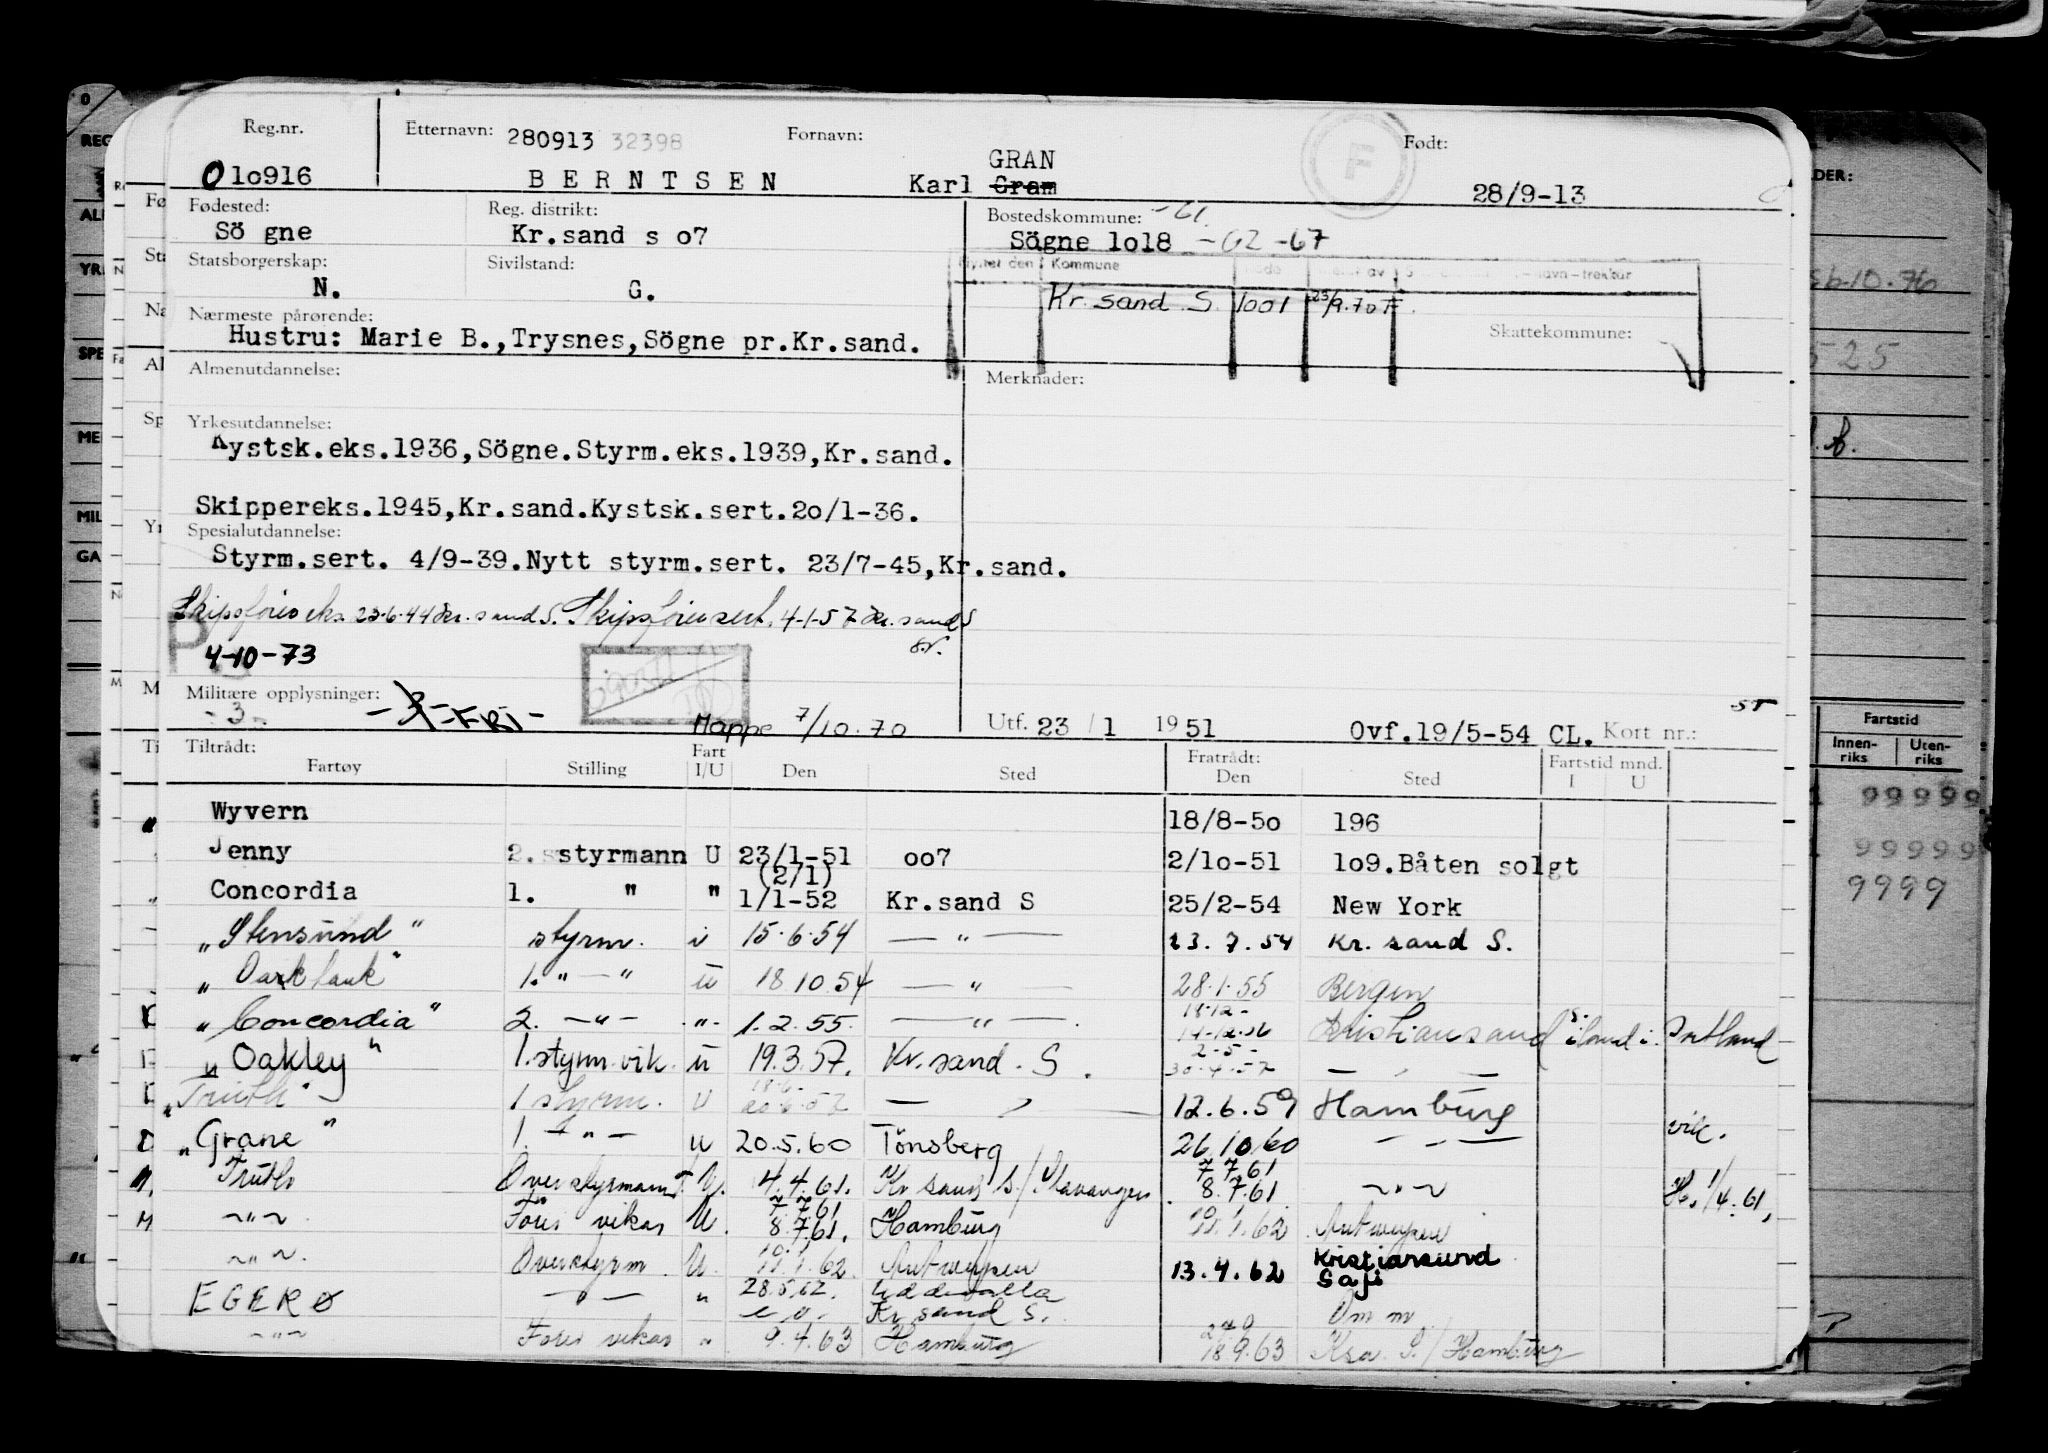 Reg.nr. Etternavn: 280913 32398 Fornavn: Født:
GRAN
010916 BERNTSEN Karl Gram 28/9-13
Fødested: Reg. distrikt: Bostedskommune: -61
Sö gne Kr.sand s o7 Sögne 1o18 -62-67
Statsborgerskap: Sivilstand: Flyttet den Kommune
N. G. Kr.sand S. 1001 23/9.70 F.
Nærmeste pårørende: Skattekommune:
Hustru: Marie B.,Trysnes,Sögne pr.Kr.sand.
Almenutdannelse: Merknader:
Yrkesutdannelse:
Kystsk.eks.1936,Sögne.Styrm.eks.1939,Kr.sand.
Skippereks.1945,Kr.sand.Kystsk.sert.2o/1-36.
Spesialutdannelse:
Styrm.sert. 4/9-39.Nytt styrm.sert. 23/7-45,Kr.sand.
Skipsförereks. 23.6.44 Kr.sand S. Skipsförersert. 4-1-57 Kr.sand S
P
4-10-73
Militære opplysninger: -3- -FRI-
Mappe 7/10.70 Utf. 23/1 1951 Ovf.19/5-54 CL. Kort nr.: ST
Tiltrådt: Fratrådt:
Fartøy Stilling Fart I/U Den Sted Den Sted Fartstid mnd. I U
Wyvern 18/8-5o 196
Jenny 2. styrmann U 23/1-51 oo7 2/1o-51 1o9.Båten solgt
(2/1)
Concordia 1. " " 1/1-52 Kr.sand S 25/2-54 New York
"Stensund" styrm. i 15.6.54 — " — 13.7.54 Kr.sand S.
1. "—" ü 18.10.54 — " — 28.1.55 Bergen
"Concordia" 2. —"— -"- 1.2.55. — " —. 18.12- 14-12-56 Kristiansand
"Oakley" 1.styrm.vik. ü 19.3.57. Kr.sand. S. 2-5- 30.4.57 — " —
"Truth" 1 styrm. U 18.6- 20.6.57 — " — 12.6.59 Hamburg
"Grane" 1. —"— u 20.5.60 Tönsberg 26.10.60 — " — vik.
Truth Overstyrmann U. 4.4.61. Kr sand S./Stavanger 7.7.61 8.7.61 ~"~ 1/4.61,
~"~ Förer vikar U. 7.7.61 8.7.61. Hamburg 10.1 11.1.62 Antwerpen
~"~ Overstyrm. U. 10.1 11.1.62 Antwerpen 13.4.62 Kristiansund
EGERØ —"— " 28.5.62. Uddevalla
Kr.sand S. Om m
~"~ Förer vikar " 9.4.63 Hamburg 18.9.63 Ksa. S./Hamburg
Fartstid
Innen-riks Uten-riks
99999
99999
9999